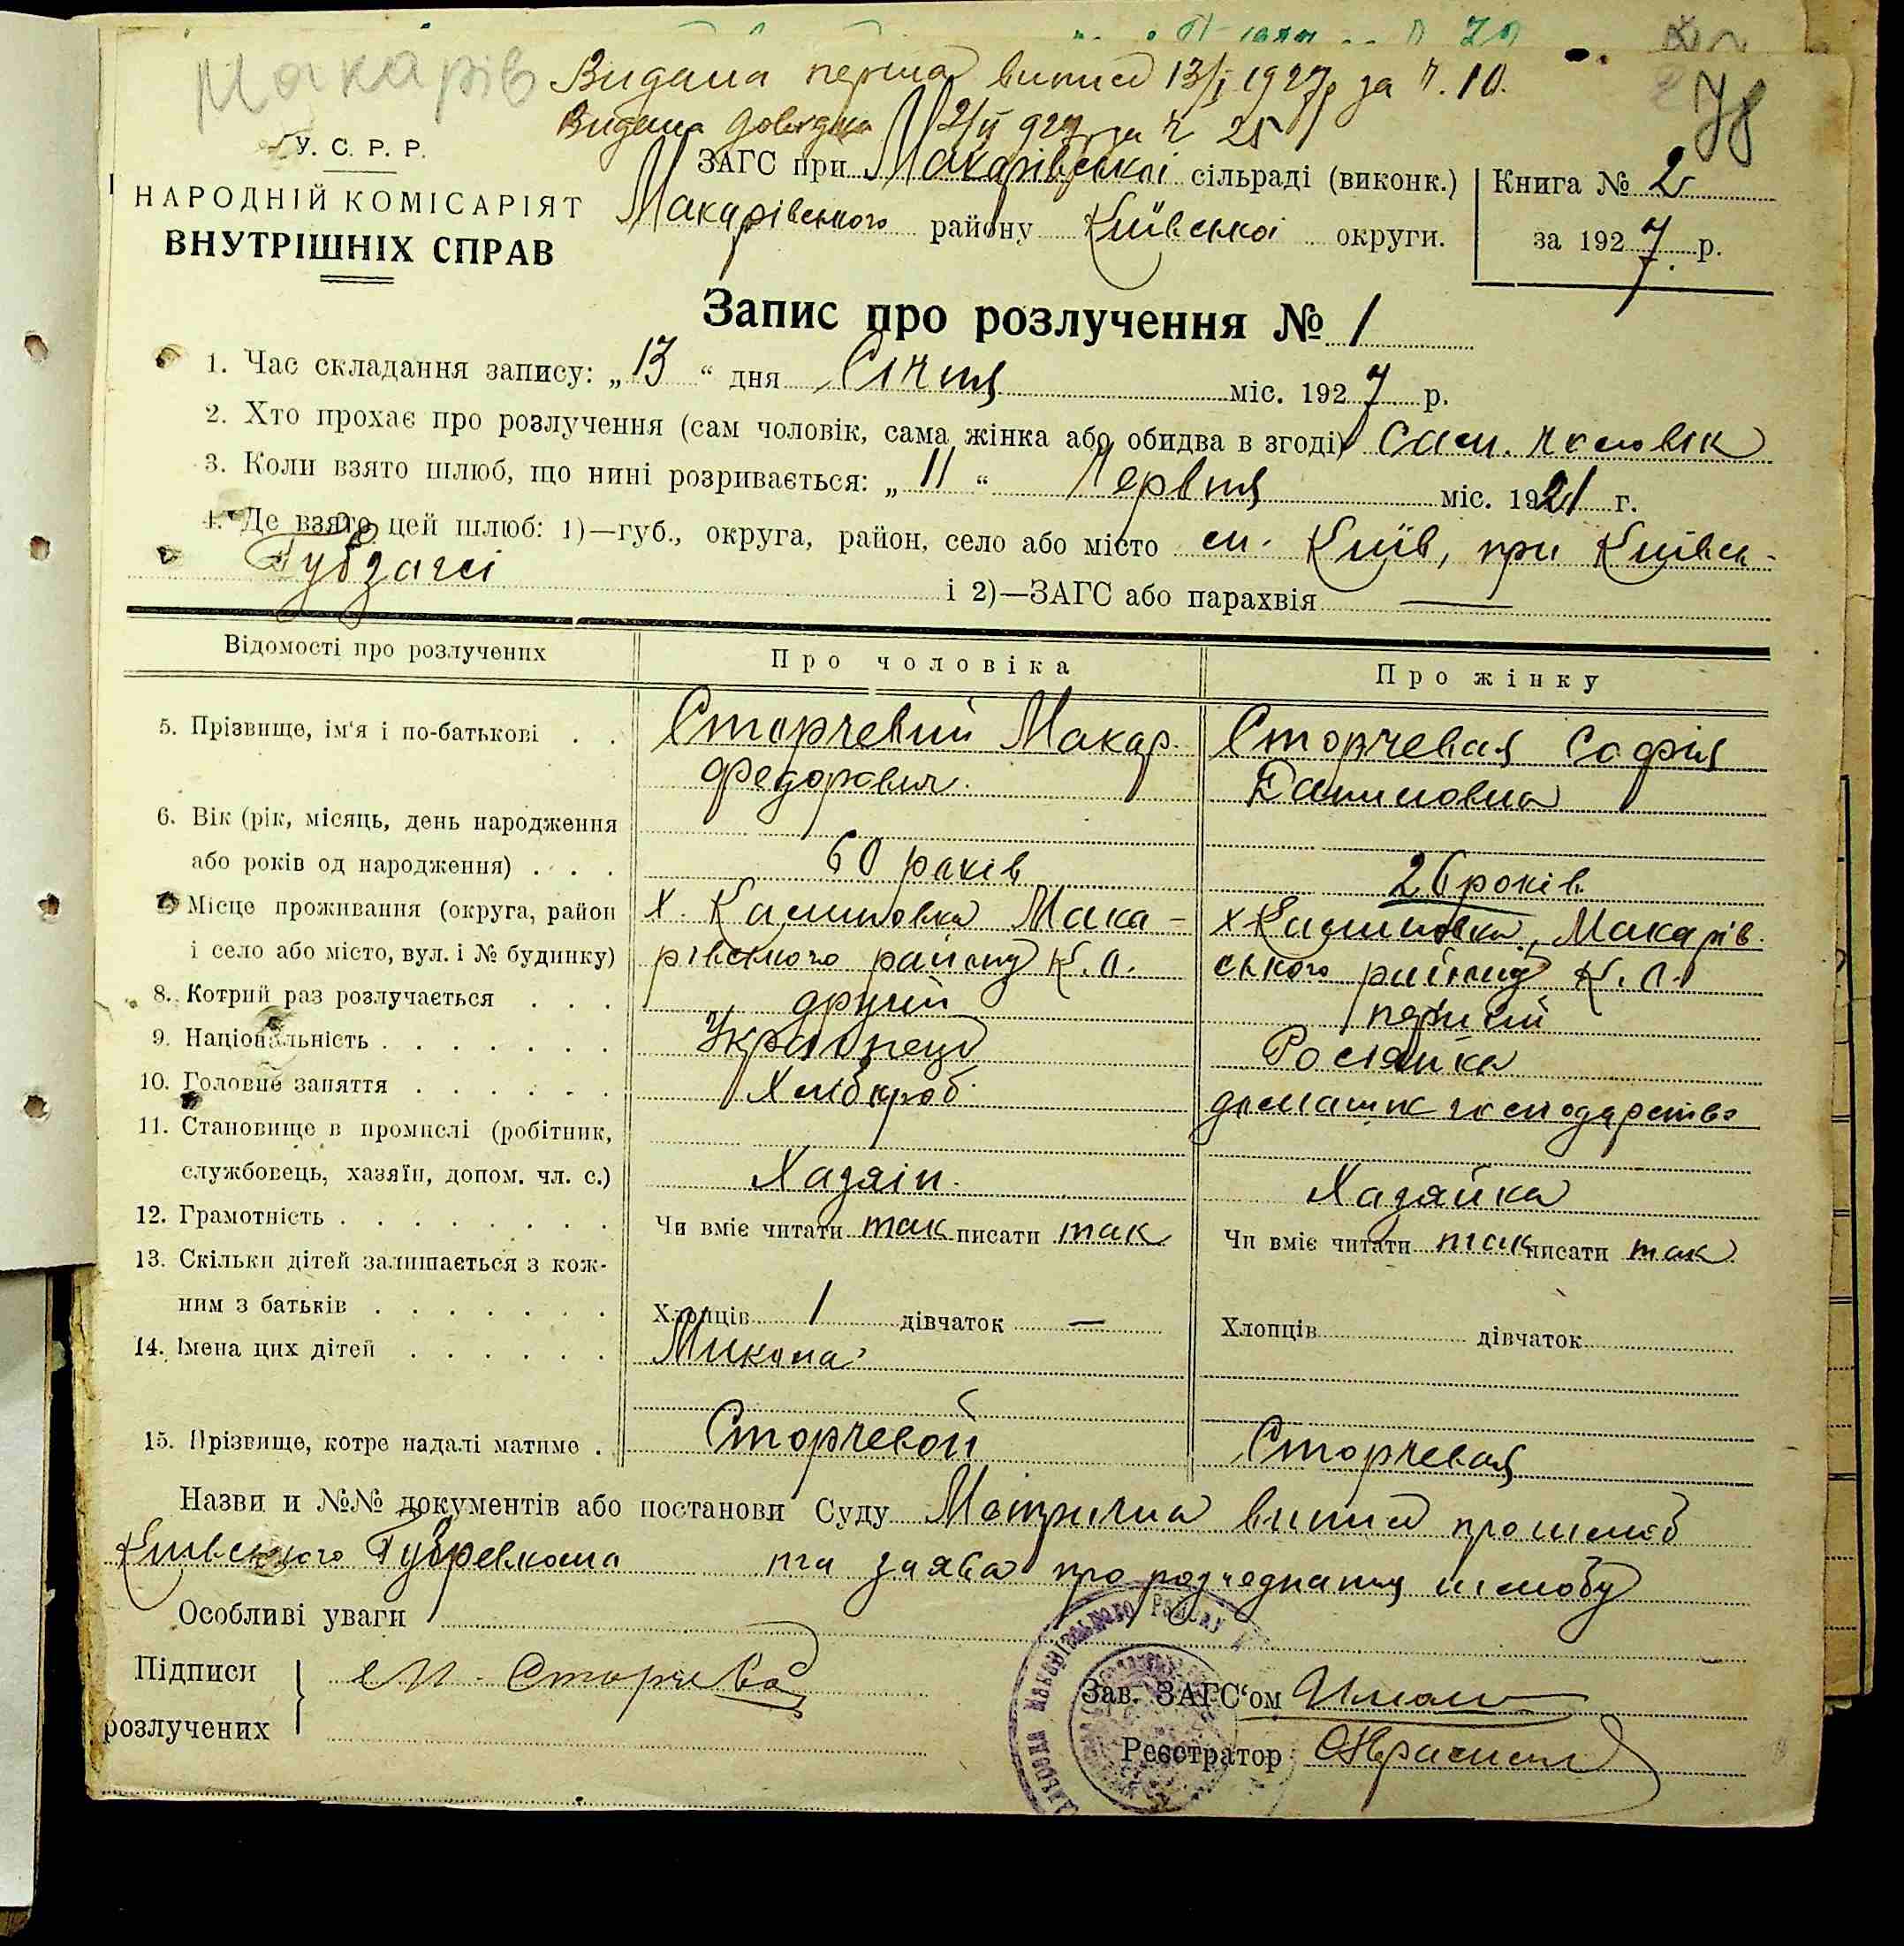 Макарів
Видана перша випись 13/I 1927р за ч. 10.
Видана 2/VI 927р за ч 25
78
У. С. Р. Р.
НАРОДНІЙ КОМІСАРІЯТ
ВНУТРІШНІХ СПРАВ
ЗАГС при Макарівській сільраді (виконк.)
Макарівського району Київської округи.
Книга № 2
за 1927 р.
Запис про розлучення № 1
1. Час складання запису: „13“ дня Січня міс. 1927 р.
2. Хто прохає про розлучення (сам чоловік, сама жінка або обидва в згоді) Сам. чоловік
3. Коли взято шлюб, що нині розривається: „11“ Червня міс. 1921 г.
4. Де взято цей шлюб: 1)—губ., округа, район, село або місто м. Київ, при Київськ-
Губзагсі і 2)—ЗАГС або парахвія —
Відомості про розлучених Про чоловіка Про жінку
5. Прізвище, ім'я і по-батькові . . Сторчевий Макар Сторчевая Софія
Федорович. Даниловна
6. Вік (рік, місяць, день народження
або років од народження) . . . 60 років 26 років
7. Місце проживання (округа, район х. Калиновка Мака- х Калиновка, Макарів-
і село або місто, вул. і № будинку) рівського району К. О. ського району К. О.
8. Котрий раз розлучається . . . другий перший
9. Національність . . . . . . . Українець Росіянка
10. Головне заняття . . . . . . Хлібороб домашнє господарство
11. Становище в промислі (робітник,
службовець, хазяїн, допом. чл. с.) Хазяін. Хазяйка
12. Грамотність . . . . . . . . Чи вміє читати так писати так Чи вміє читати так писати так
13. Скільки дітей залишається з кож-
ним з батьків . . . . . . . Хлопців 1 дівчаток — Хлопців дівчаток
14. Імена цих дітей . . . . . . Микола
15. Прізвище, котре надалі матиме . Сторчевой Сторчевая
Назви и №№ документів або постанови Суду Метрична випись про шлюб
Київського Губревкома та заява про роз'єднання шлюбу
Особливі уваги
Підписи
розлучених
Зав. ЗАГС'ом
Реєстратор